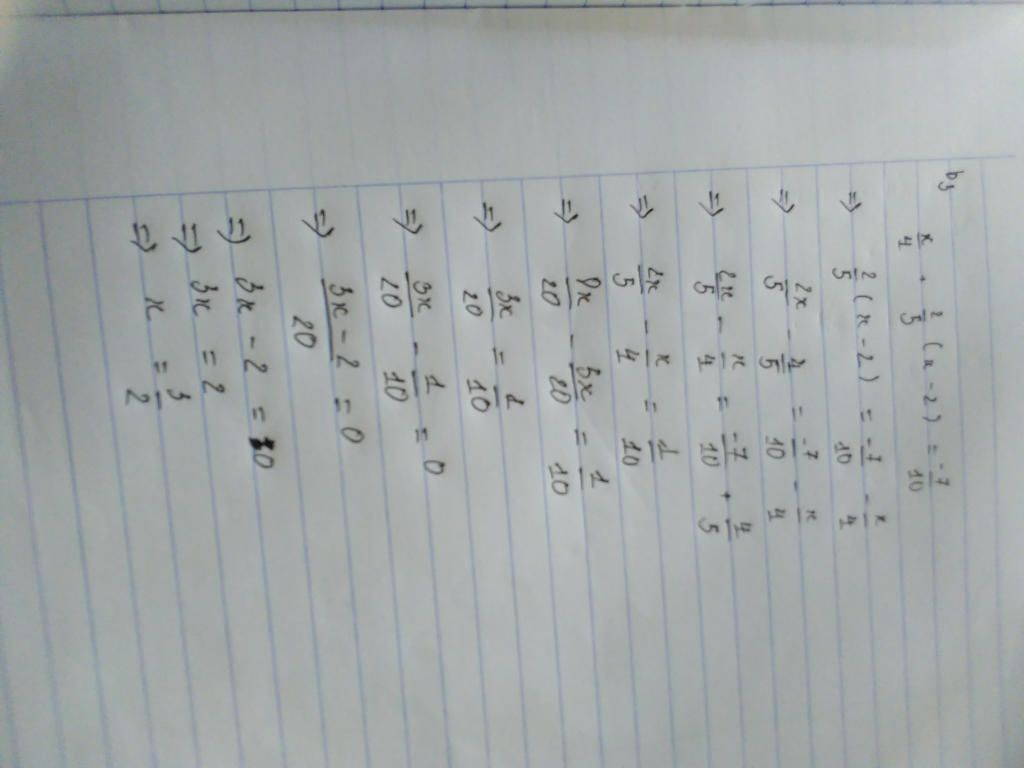 b,
x/4 + 2/5 (x - 2) = -7/10
=> 2/5 (x - 2) = -7/10 - x/4
=> 2x/5 - 4/5 = -7/10 - x/4
=> 2x/5 - x/4 = -7/10 + 4/5
=> 2x/5 - x/4 = 1/10
=> 8x/20 - 5x/20 = 1/10
=> 3x/20 = 1/10
=> 3x/20 - 1/10 = 0
=> (3x - 2)/20 = 0
=> 3x - 2 = 0
=> 3x = 2
=> x = 3/2